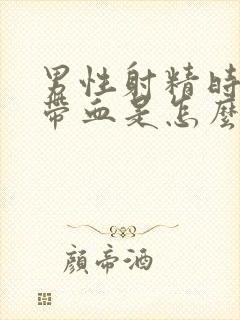 男性射精時
帶血是怎麼
顏帝酒